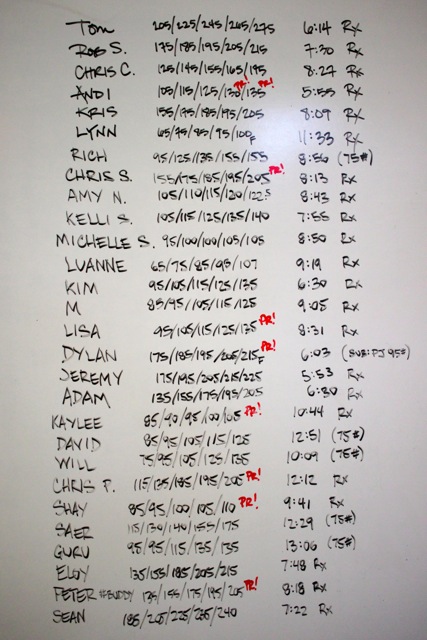 Tom 205/225/245/265/275 6:14 Rx
ROB S. 175/185/195/205/215 7:30 Rx
CHRIS C. 125/145/155/165/195 8:27 Rx
ANDI 105/115/125/130/135 PR! PR! 5:55 Rx
KRIS 155/175/185/195/205 8:09 Rx
LYNN 65/75/85/95/100F 11:33 Rx
RICH 95/125/135/155/155 8:56 (75#)
CHRIS S. 155/175/185/195/205 PR! 8:13 Rx
AMY N. 105/110/115/120/122.5 8:43 Rx
KELLI S. 105/115/125/135/140 7:55 Rx
MICHELLE S. 95/100/100/105/105 8:50 Rx
LUANNE 65/75/85/95/107 9:19 Rx
KIM 95/105/115/125/135 6:30 Rx
M 85/95/105/115/125 9:05 Rx
LISA 95/105/115/125/135 PR! 8:31 Rx
DYLAN 175/185/195/205/215F PR! 6:03 (SUB: PJ 95#)
JEREMY 175/195/205/215/225 5:53 Rx
ADAM 135/155/175/195/205 6:30 Rx
KAYLEE 85/90/95/100/105 PR! 10:44 Rx
DAVID 85/95/105/115/125 12:51 (75#)
WILL 75/95/105/125/135 10:09 (75#)
CHRIS P. 115/135/185/195/205 PR! 12:12 Rx
SHAY 85/95/100/105/110 PR! 9:41 Rx
SAER 115/130/140/155/175 12:29 (75#)
GURU 95/95/115/135/135 13:06 (75#)
ELOY 135/155/185/205/215 7:48 Rx
PETER #BUDDY 135/155/175/195/205 PR! 8:18 Rx
SEAN 185/205/225/235/240 7:22 Rx